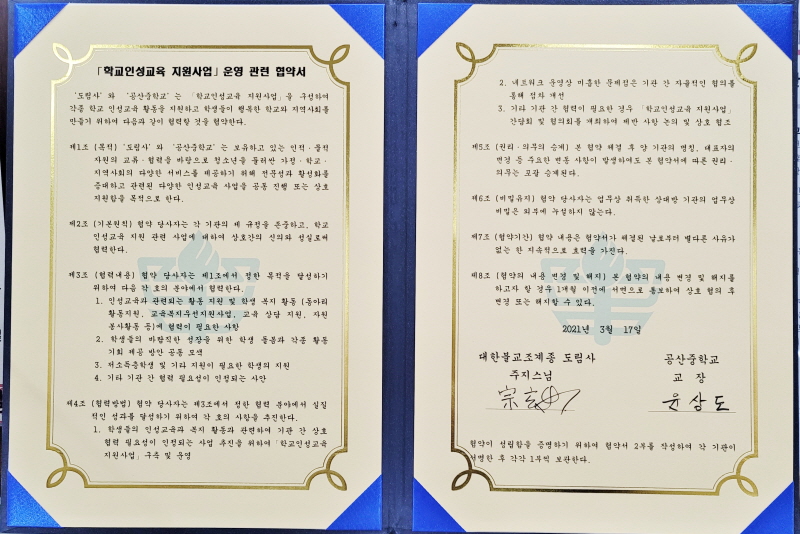 「학교인성교육 지원사업」 운영 관련 협약서
'도림사' 와 '공산중학교' 는 「학교인성교육 지원사업」을 구성하여
각종 학교 인성교육 활동을 지원하고 학생들이 행복한 학교와 지역사회를
만들기 위하여 다음과 같이 협력할 것을 협약한다.
제1조 (목적) '도림사' 와 '공산중학교' 는 보유하고 있는 인적·물적
자원의 교류·협력을 바탕으로 청소년을 둘러싼 가정·학교·
지역사회의 다양한 서비스를 제공하기 위해 전문성과 활성화를
증대하고 관련된 다양한 인성교육 사업을 공동 진행 또는 상호
지원함을 목적으로 한다.
제2조 (기본원칙) 협약 당사자는 각 기관의 제 규정을 존중하고, 학교
인성교육 지원 관련 사업에 대하여 상호간의 신의와 성실로써
협력한다.
제3조 (협력내용) 협약 당사자는 제1조에서 정한 목적을 달성하기
위하여 다음 각 호의 분야에서 협력한다.
1. 인성교육과 관련되는 활동 지원 및 학생 복지 활동 (동아리
활동지원, 교육복지우선지원사업, 교육 상담 지원, 자원
봉사활동 등)에 협력이 필요한 사항
2. 학생들의 바람직한 성장을 위한 학생 돌봄과 각종 활동
기회 제공 방안 공동 모색
3. 저소득층학생 및 기타 지원이 필요한 학생의 지원
4. 기타 기관 간 협력 필요성이 인정되는 사안
제4조 (협력방법) 협약 당사자는 제3조에서 정한 협력 분야에서 실질
적인 성과를 달성하기 위하여 각 호의 사항을 추진한다.
1. 학생들의 인성교육과 복지 활동과 관련하여 기관 간 상호
협력 필요성이 인정되는 사업 추진을 위하여 「학교인성교육
지원사업」 구축 및 운영
2. 네트워크 운영상 미흡한 문제점은 기관 간 자율적인 협의를
통해 점차 개선
3. 기타 기관 간 협력이 필요한 경우 「학교인성교육 지원사업」
간담회 및 협의회를 개최하여 제반 사항 논의 및 상호 협조
제5조 (권리·의무의 승계) 본 협약 체결 후 양 기관의 명칭, 대표자의
변경 등 주요한 변동 사항이 발생하여도 본 협약서에 따른 권리·
의무는 포괄 승계된다.
제6조 (비밀유지) 협약 당사자는 업무상 취득한 상대방 기관의 업무상
비밀은 외부에 누설하지 않는다.
제7조 (협약기간) 협약 내용은 협약서가 체결된 날로부터 별다른 사유가
없는 한 지속적으로 효력을 가진다.
제8조 (협약의 내용 변경 및 해지) 본 협약의 내용 변경 및 해지를
하고자 할 경우 1개월 이전에 서면으로 통보하여 상호 협의 후
변경 또는 해지할 수 있다.
2021년 3월 17일
대한불교조계종 도림사
주지스님
宗玄
공산중학교
교 장
윤상도
협약이 성립함을 증명하기 위하여 협약서 2부를 작성하여 각 기관이
서명한 후 각각 1부씩 보관한다.